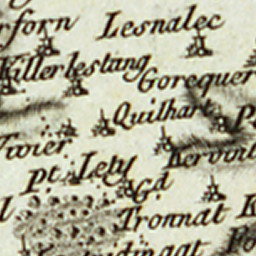 rforn Lesnalec
Killerlestang
Gorequer
Quilhart P
Vivier
Kervint
Pt. Lety
Gd
Tronnat K